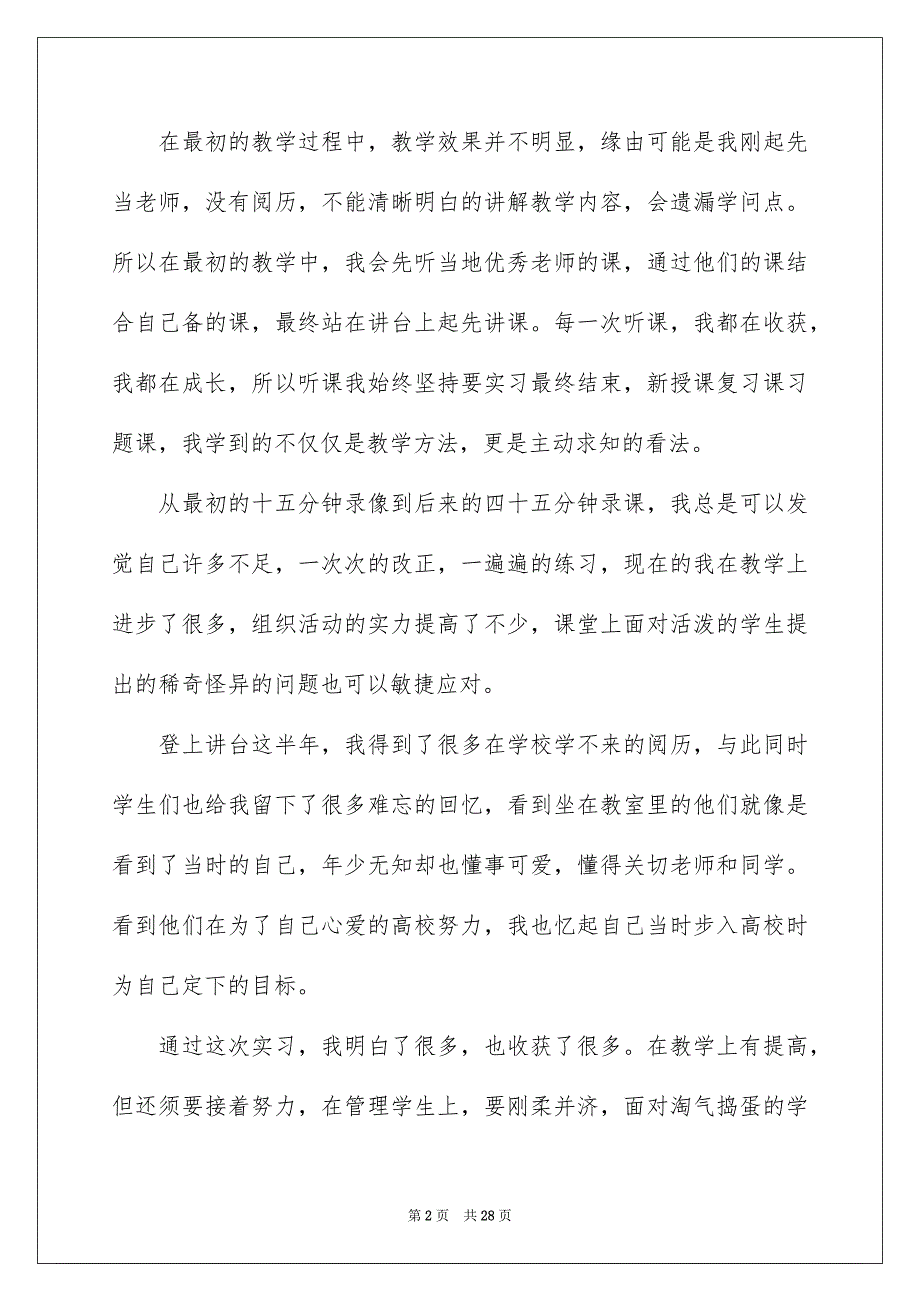 在最初的教学过程中，教学效果并不明显，缘由可能是我刚起先
当老师，没有阅历，不能清晰明白的讲解教学内容，会遗漏学问点。
所以在最初的教学中，我会先听当地优秀老师的课，通过他们的课结
合自己备的课，最终站在讲台上起先讲课。每一次听课，我都在收获，
我都在成长，所以听课我始终坚持要实习最终结束，新授课复习课习
题课，我学到的不仅仅是教学方法，更是主动求知的看法。
从最初的十五分钟录像到后来的四十五分钟录课，我总是可以发
觉自己许多不足，一次次的改正，一遍遍的练习，现在的我在教学上
进步了很多，组织活动的实力提高了不少，课堂上面对活泼的学生提
出的稀奇怪异的问题也可以敏捷应对。
登上讲台这半年，我得到了很多在学校学不来的阅历，与此同时
学生们也给我留下了很多难忘的回忆，看到坐在教室里的他们就像是
看到了当时的自己，年少无知却也懂事可爱，懂得关切老师和同学。
看到他们在为了自己心爱的高校努力，我也忆起自己当时步入高校时
为自己定下的目标。
通过这次实习，我明白了很多，也收获了很多。在教学上有提高，
但还须要接着努力，在管理学生上，要刚柔并济，面对淘气捣蛋的学
第 2 页 共 28 页